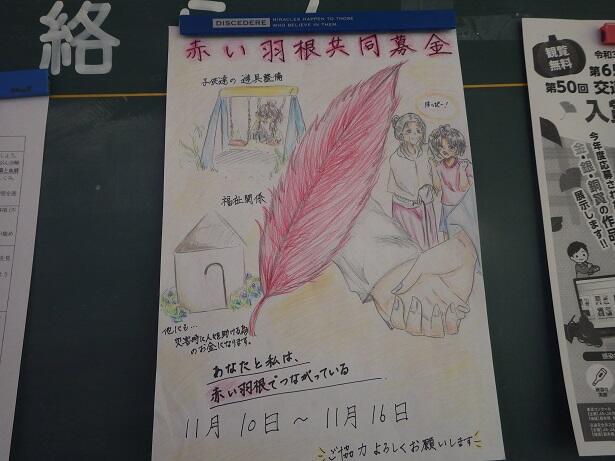 絡
DISCEDERE
MIRACLES HAPPEN TO THOSE
WHO BELIEVE IN THEM.
赤い羽根共同募金
子供達の遊具整備
はっぴー!
福祉関係
他にも…
災害時に人を助ける為
のお金になります。
あなたと私は、
赤い羽根でつながっている
11月 10日 ~ 11月 16日
ご協力よろしくお願いします
観覧
無料
令和3
第65
第50回 交通
入賞
今年度応募
金・銀・銅賞の作品
展示します!!